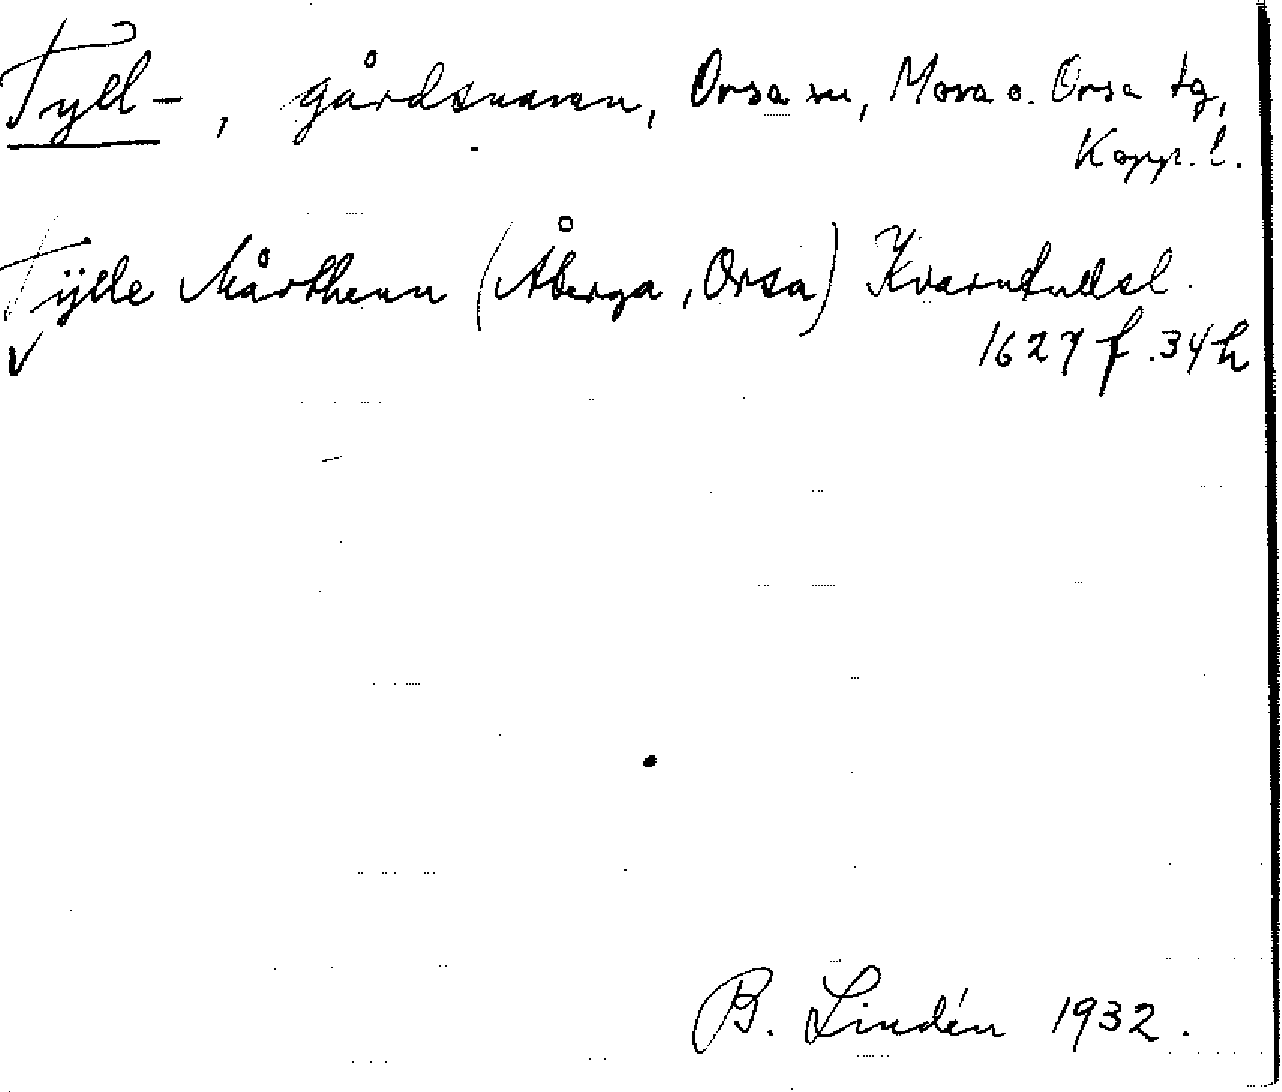 Tyll-, gårdsnamn, Orsa sn, Mora o. Orsa tg,
Kopp. l.
Tÿlle Mårthenn (Åberga, Orsa) Kvarntullsl.
1627 f. 34 h
B. Lindén 1932.